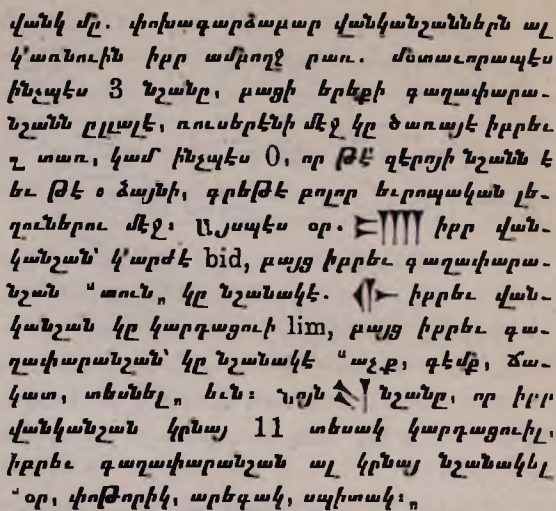 վանկ մը. փոխադարձաբար վանկանշաններն ալ
կ'առնուին իբր ամբողջ բառ. մօտաւորապէս
ինչպէս 3 նշանը, բացի երեքի գաղափարա-
նշանն ըլլալէ, ռուսերէնի մէջ կը ծառայէ իբրեւ
զ տառ, կամ ինչպէս 0, որ թէ զերոյի նշանն է
եւ թէ օ ձայնի, գրեթէ բոլոր եւրոպական լե-
զուներու մէջ։ Այսպէս օր. 𒂍 իբր վան-
կանշան՝ կ'արժէ bid, բայց իբրեւ գաղափարա-
նշան "տուն„ կը նշանակէ. 𒅆 իբրեւ վան-
կանշան կը կարդացուի lim, բայց իբրեւ գա-
ղափարանշան՝ կը նշանակէ "աչք, դէմք, ճա-
կատ, տեսնել„ եւն։ Նոյն 𒌓 նշանը, որ իբր
վանկանշան կրնայ 11 տեսակ կարդացուիլ,
իբրեւ գաղափարանշան ալ կրնայ նշանակել
"օր, փոթորիկ, արեգակ, սպիտակ։„